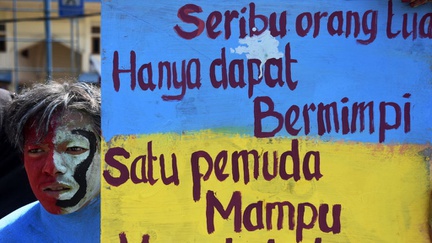 Seribu orang tua
Hanya dapat
Bermimpi
Satu pemuda
Mampu